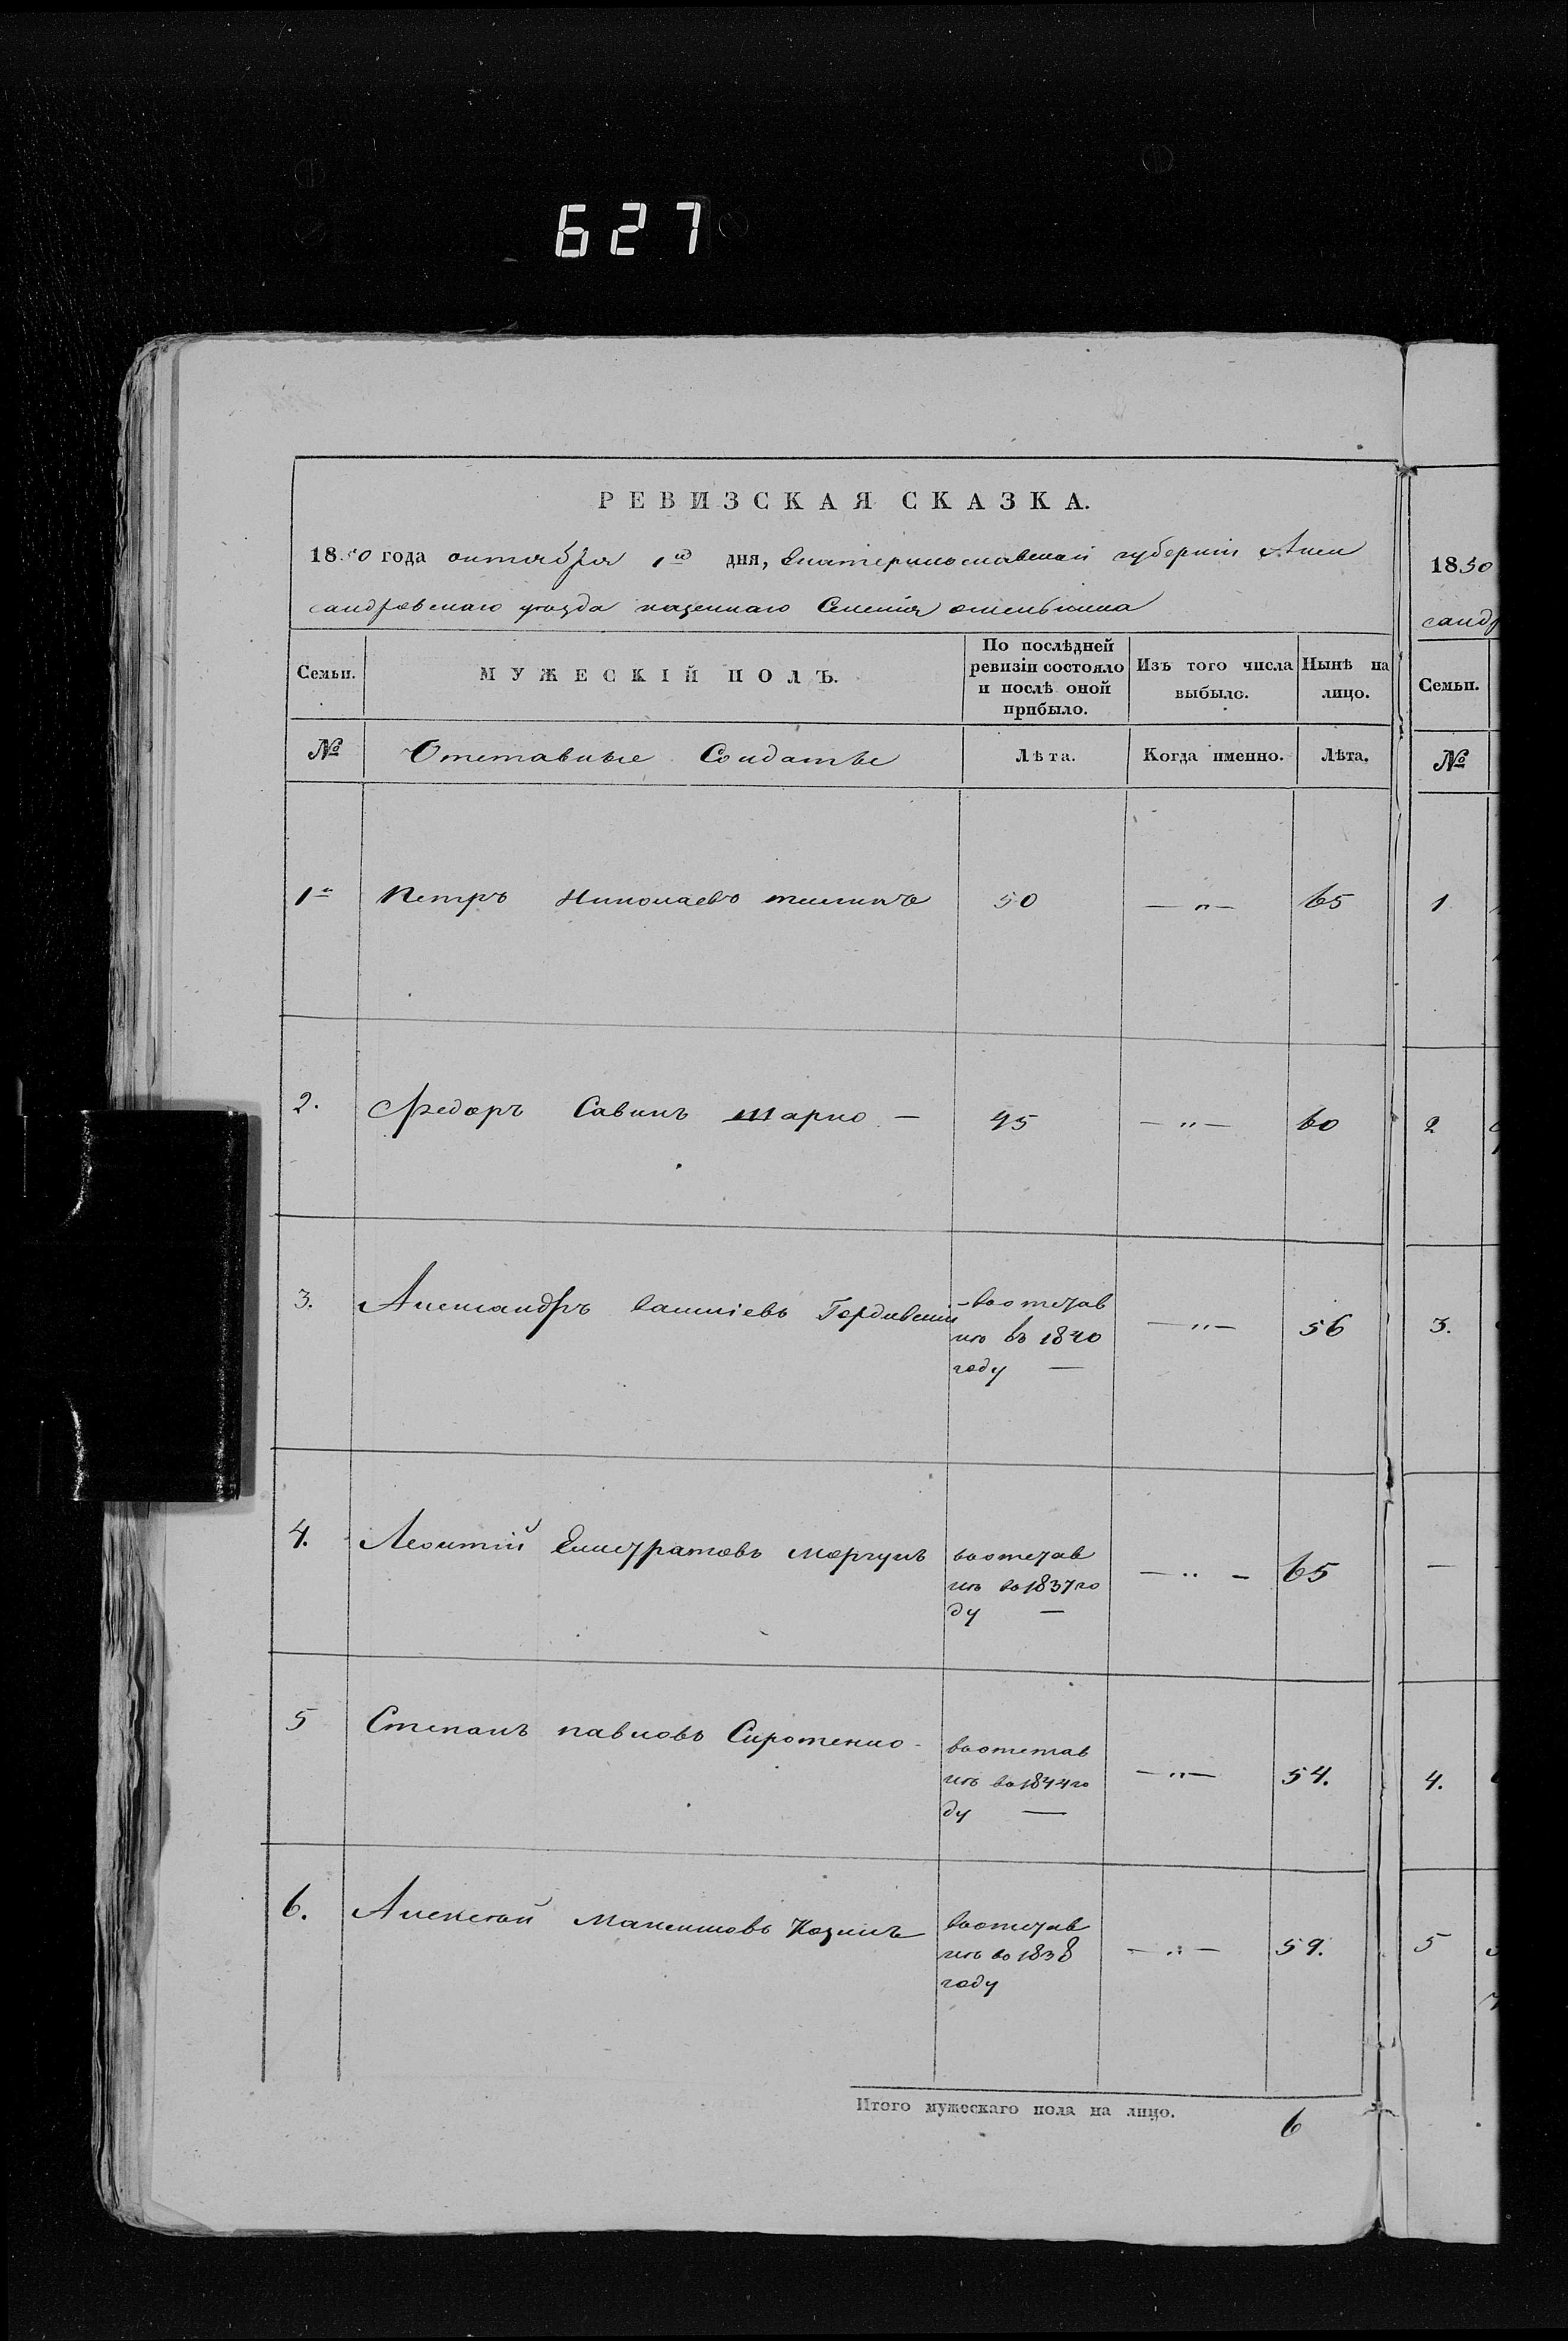 627
РЕВИЗСКАЯ СКАЗКА.
1850 года октября 1го дня, Екатеринославской губернии Алек
сандровскаго уѣзда казеннаго Селенія омельника
Семьи.
МУЖЕСКІЙ ПОЛЪ.
По послѣдней ревизіи состояло и послѣ оной прибыло.
Изъ того числа выбыло.
Нынѣ на лицо.
№ Отставные Солдаты Лѣта. Когда именно. Лѣта.
1й Петръ Николаевъ 50 — „ — 65
2. Федоръ Савинъ шарко — 45 — „ — 60
3. Александръ Гордиевский — „ — 56
въ отстав
кѣ въ 1840
году —
4. Леонтій Елистратовъ моргунъ — „ — 65
въ отстав
кѣ въ 1837 го
ду —
5 Степанъ павловъ Сиротенко — „ — 54.
въ отстав
кѣ въ 1844 го
ду —
6. Алексѣй Максимовъ Козинъ — „ — 59.
въ отстав
кѣ въ 1838
году
Итого мужескаго пола на лицо. 6
1850
санд
Семьи.
№
1
2
3.
—
4.
5